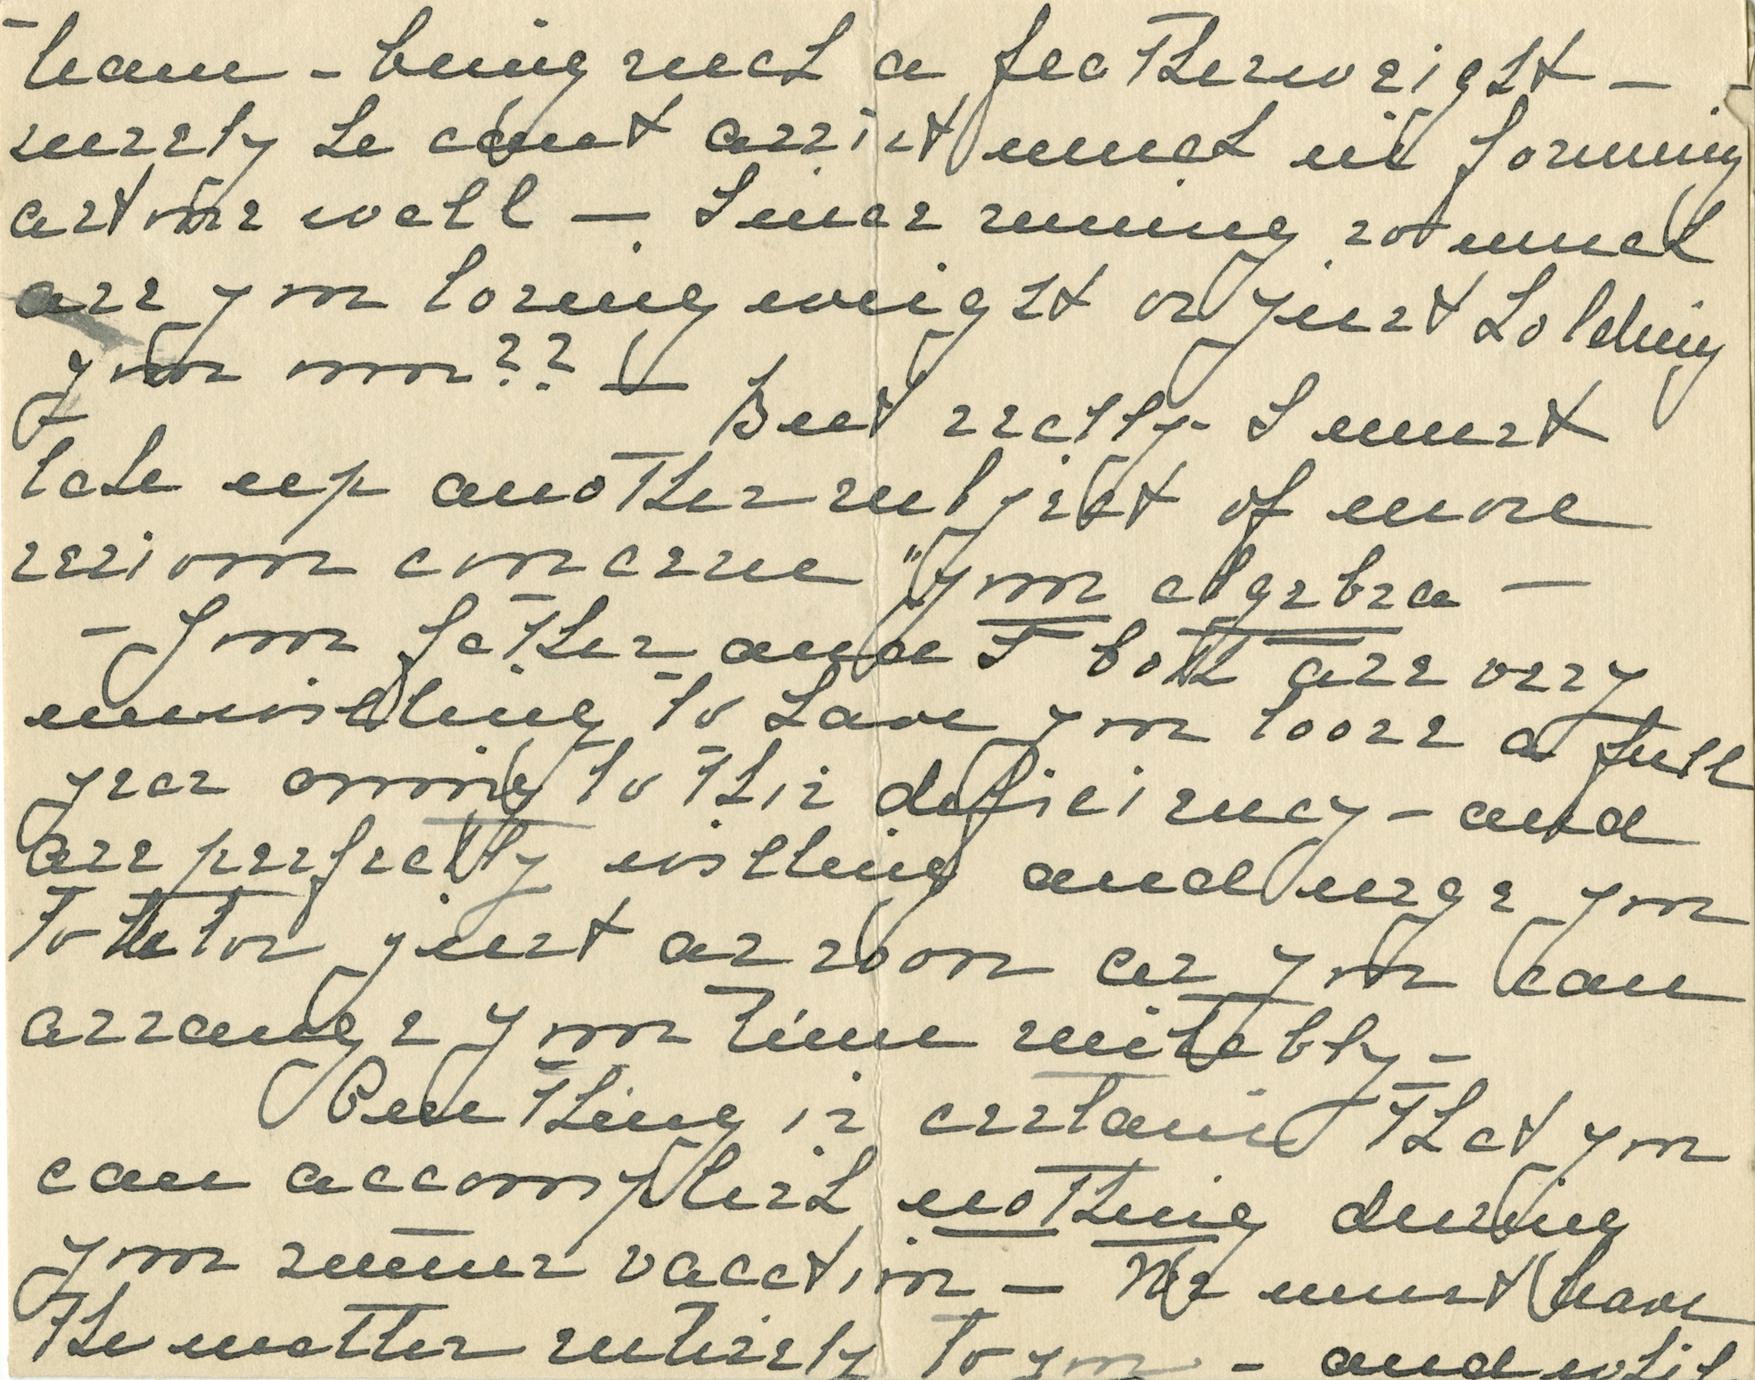 team - being such a featherweight -
surely he cant assist much in forming
actour well - Since runing so much
are you losing weight or just holding
your own?? - But really - I must
take up another subject of more
serious concerne "your algebra -
- Your father and I both are very
unwilling to have you loose a full
year owing to this deficiency - and
are perfectly willing and urge you
to tutor just as soon as you can
arrange your time suitably -
One thing is certain that you
can accomplish nothing during
your sumer vacation - We must leave
the matter entirely to you - and